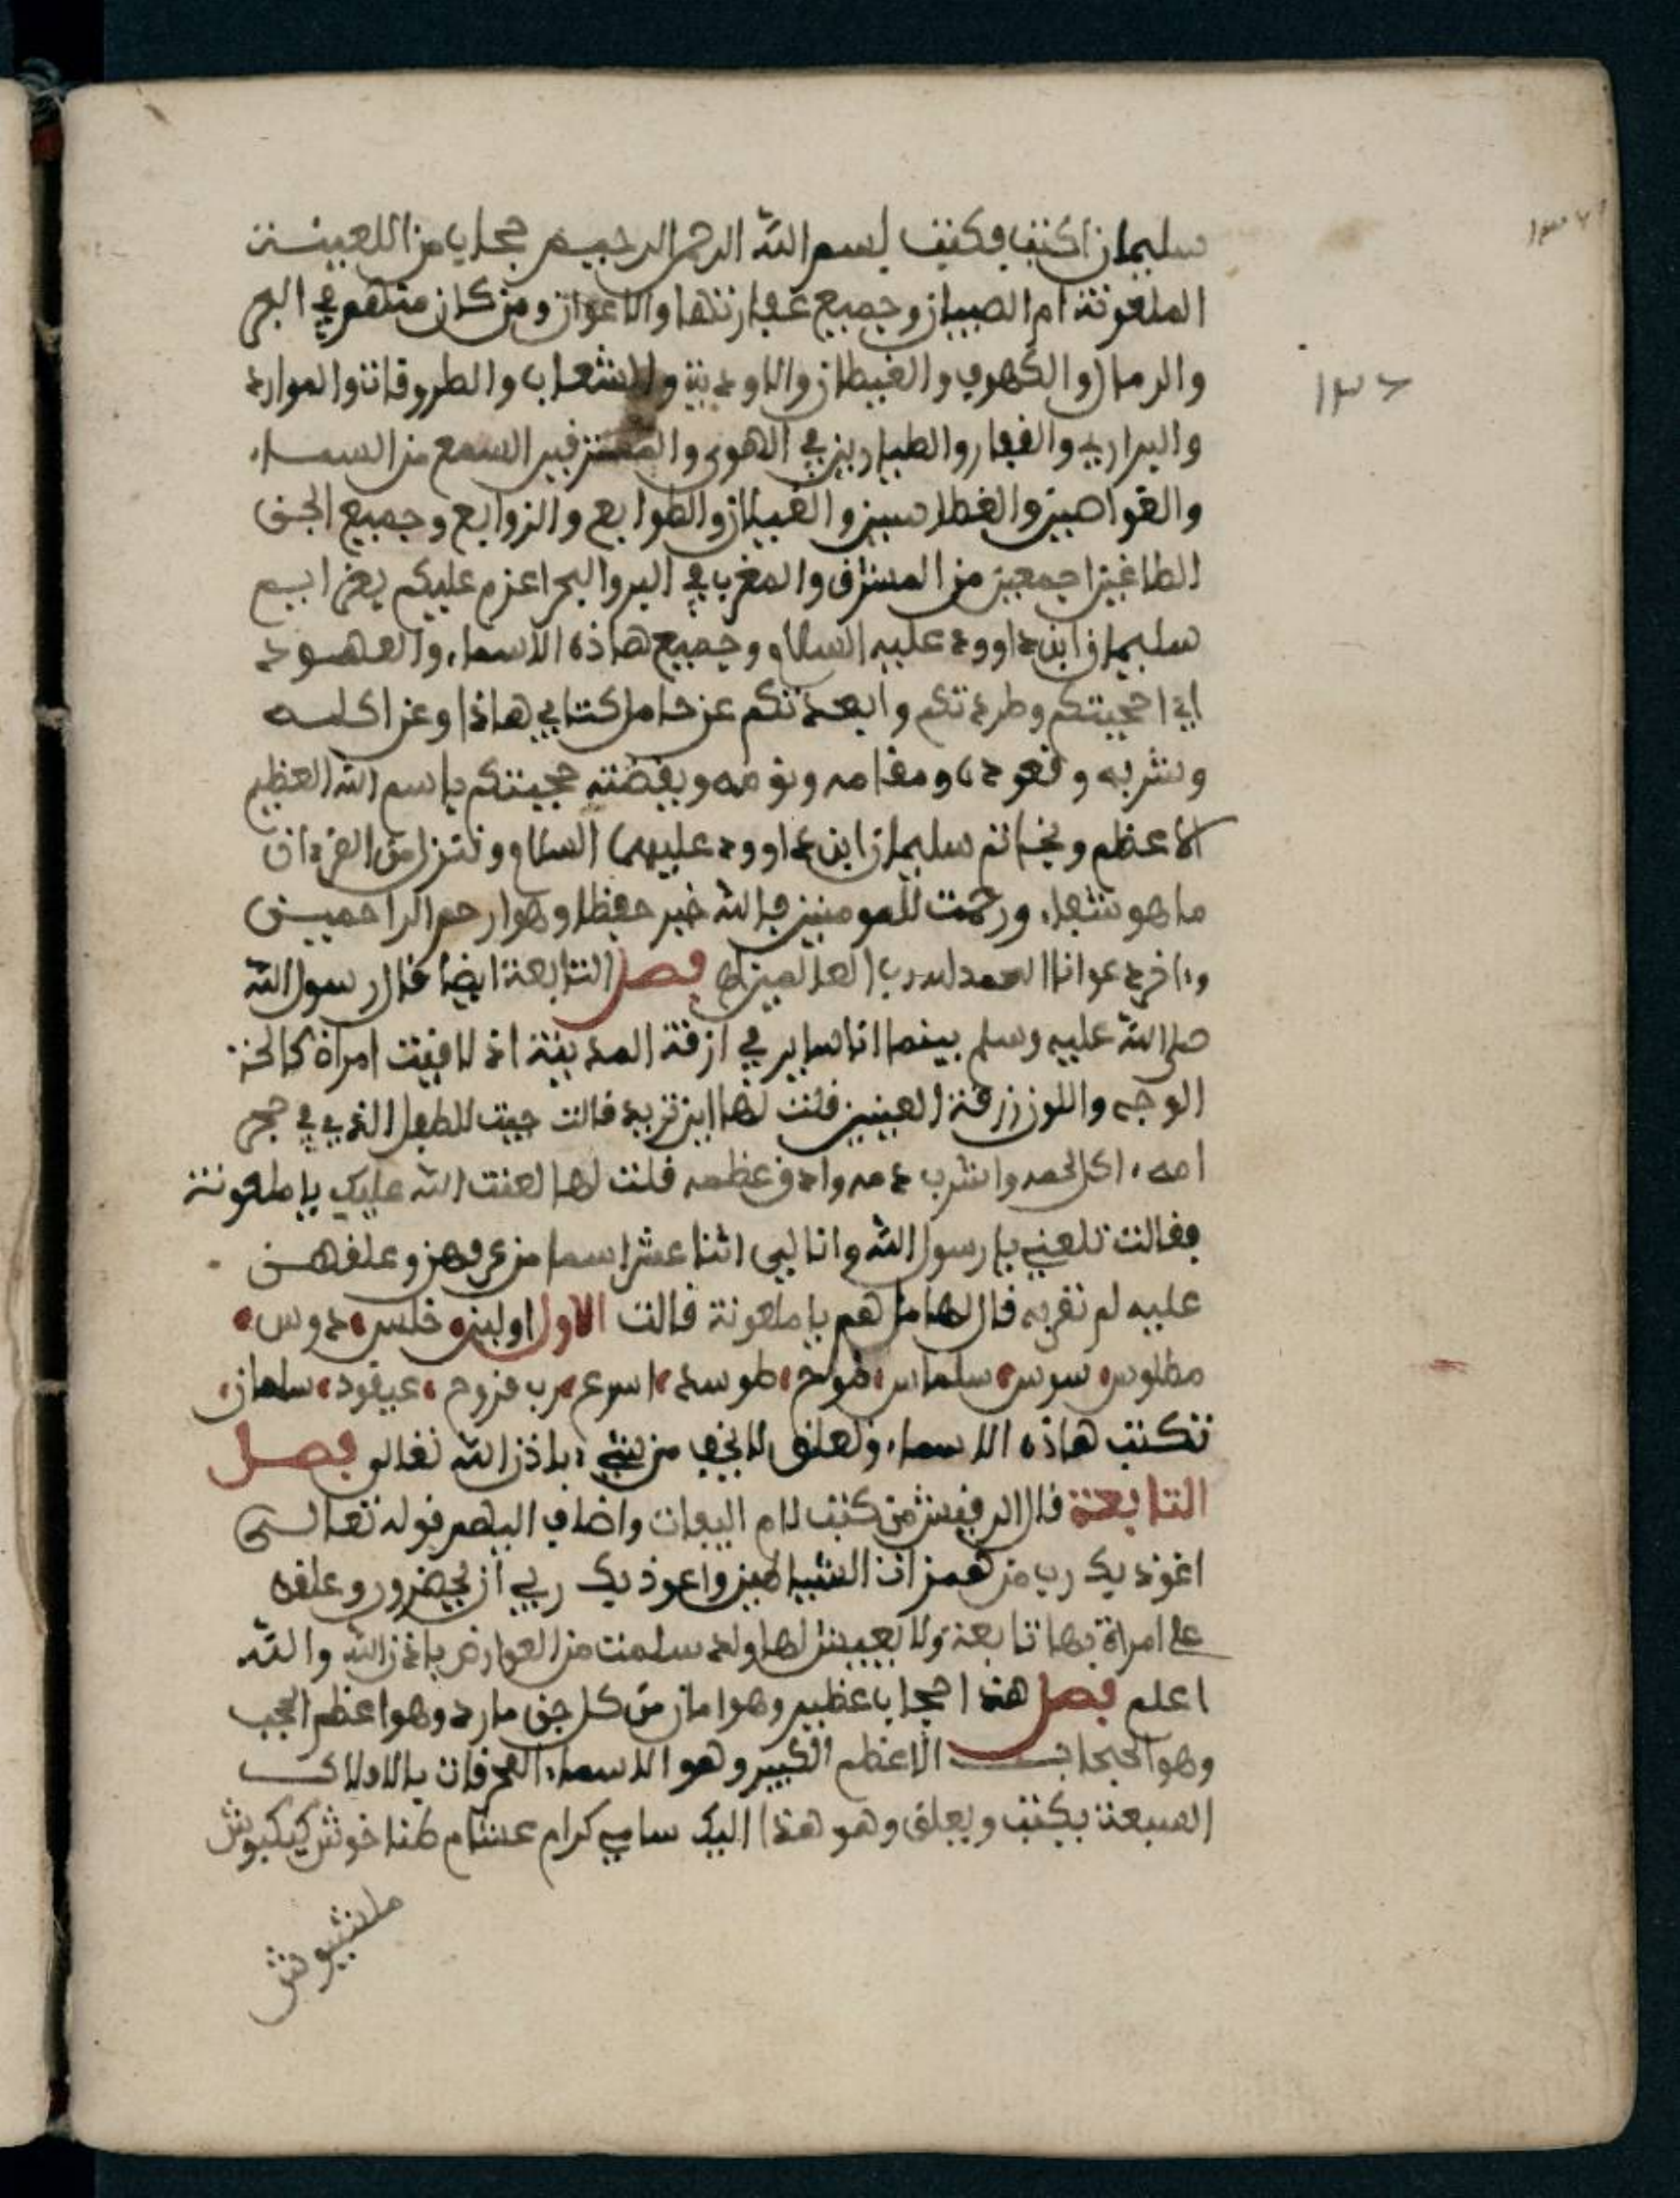 سليمان اكتب فكتب بسم الله الرحمن الرحيم حجاب من اللعينة
الملعونة ام الصبيان وجميع عفارتها والاعوان ومن كان منهم في البحر
والرمال والكهوف والغيطان والاودية والشعاب والطروقات والموارد
والبراري والقفار والطيارين في الهوى والمسترقين السمع من السماء
والغواصين والغطاسين والغيلان والطوابع والزوابع وجميع الجن
الطاغين اجمعين من المشرق والمغرب في البر والبحر اعزم عليكم
سليمان ابن داوود عليه السلام وجميع هاذه الاسماء والعهود
اني احجبتكم وطردتكم وابعدتكم عن حامل كتابي هاذا وعن اكله
وشربه وقعوده ومقامه ونومه ويقضته حجبتكم باسم الله العظيم
الاعظم وبخاتم سليمان ابن داوود عليهما السلام وننزل من القرءان
ما هو شفاء ورحمت للمومنين فالله خير حفظا وهو ارحم الراحمين
وءاخر دعوانا الحمد لله رب العالمين فصل التابعة ايضا قال رسول الله
صلى الله عليه وسلم بينما انا ساير في ازقة المدينة اذ لاقيت امراة كالحة
الوجه واللون زرقة العينين قلت لها اين تريد قالت جيت للطفل الذي في حجر
امه اكل لحمه واشرب دمه وادق عظمه قلت لها لعنت الله عليك يا ملعونة
فقالت تلعني يا رسول الله وانا لي اثنا عشر اسما من عرفهن وعلقهن
عليه لم نقربه قال لها ما هم يا ملعونة قالت الاول اولين خلس دوس
مطلوس سوس سلماس طوح طوسد اسرع رب قزوح عيقود سلمان
تكتب هاذه الاسماء وتعلق لا يخف من شيء باذن الله تعالى فصل
التابعة قال الرقيش من كتب لام اليفات واضاف اليهم قوله تعالى
اعوذ بك رب من همزات الشياطين واعوذ بك ربي ان يحضرون وعلقه
على امراة بها تابعة ولا يعيش لها ولد سلمت من العوارض باذن الله والله
اعلم فصل هذا حجاب عظيم وهو امان من كل جن مارد وهو اعظم الحجب
وهو الحجاب الاعظم الكبير وهو الاسماء المحرقات بالافلاك
السبعة يكتب ويعلق وهو هذا اليك سامي كرام عشام طنا خوش كيكبوش
ملشيوش